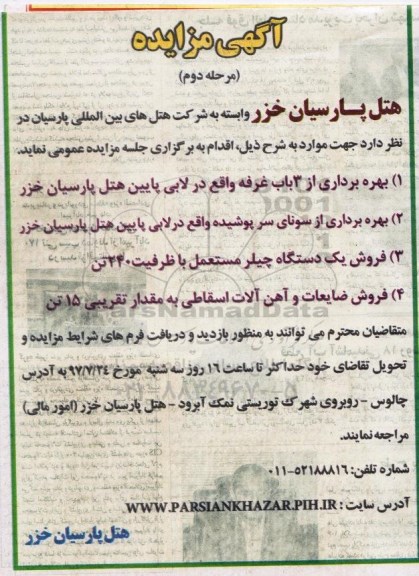 آگهی مزایده
(مرحله دوم)
هتل پارسیان خزر وابسته به شرکت هتل های بین المللی پارسیان در
نظر دارد جهت موارد به شرح ذیل، اقدام به برگزاری جلسه مزایده عمومی نماید.
۱) بهره برداری از ۳باب غرفه واقع در لابی پایین هتل پارسیان خزر
۲) بهره برداری از سونای سر پوشیده واقع درلابی پایین هتل پارسیان خزر
۳) فروش یک دستگاه چیلر مستعمل با ظرفیت۲۴۰تن
۴) فروش ضایعات و آهن آلات اسقاطی به مقدار تقریبی ۱۵ تن
متقاضیان محترم می توانند به منظور بازدید و دریافت فرم های شرایط مزایده و
تحویل تقاضای خود حداکثر تا ساعت ۱۶ روز سه شنبه مورخ ۹۷/۷/۲۴ به آدرس
چالوس - روبروی شهرک توریستی نمک آبرود - هتل پارسیان خزر (امور مالی)
مراجعه نمایند.
شماره تلفن: ۵۲۱۸۸۸۱۶-۰۱۱
آدرس سایت : WWW.PARSIANKHAZAR.PIH.IR
هتل پارسیان خزر
ParsNamadData